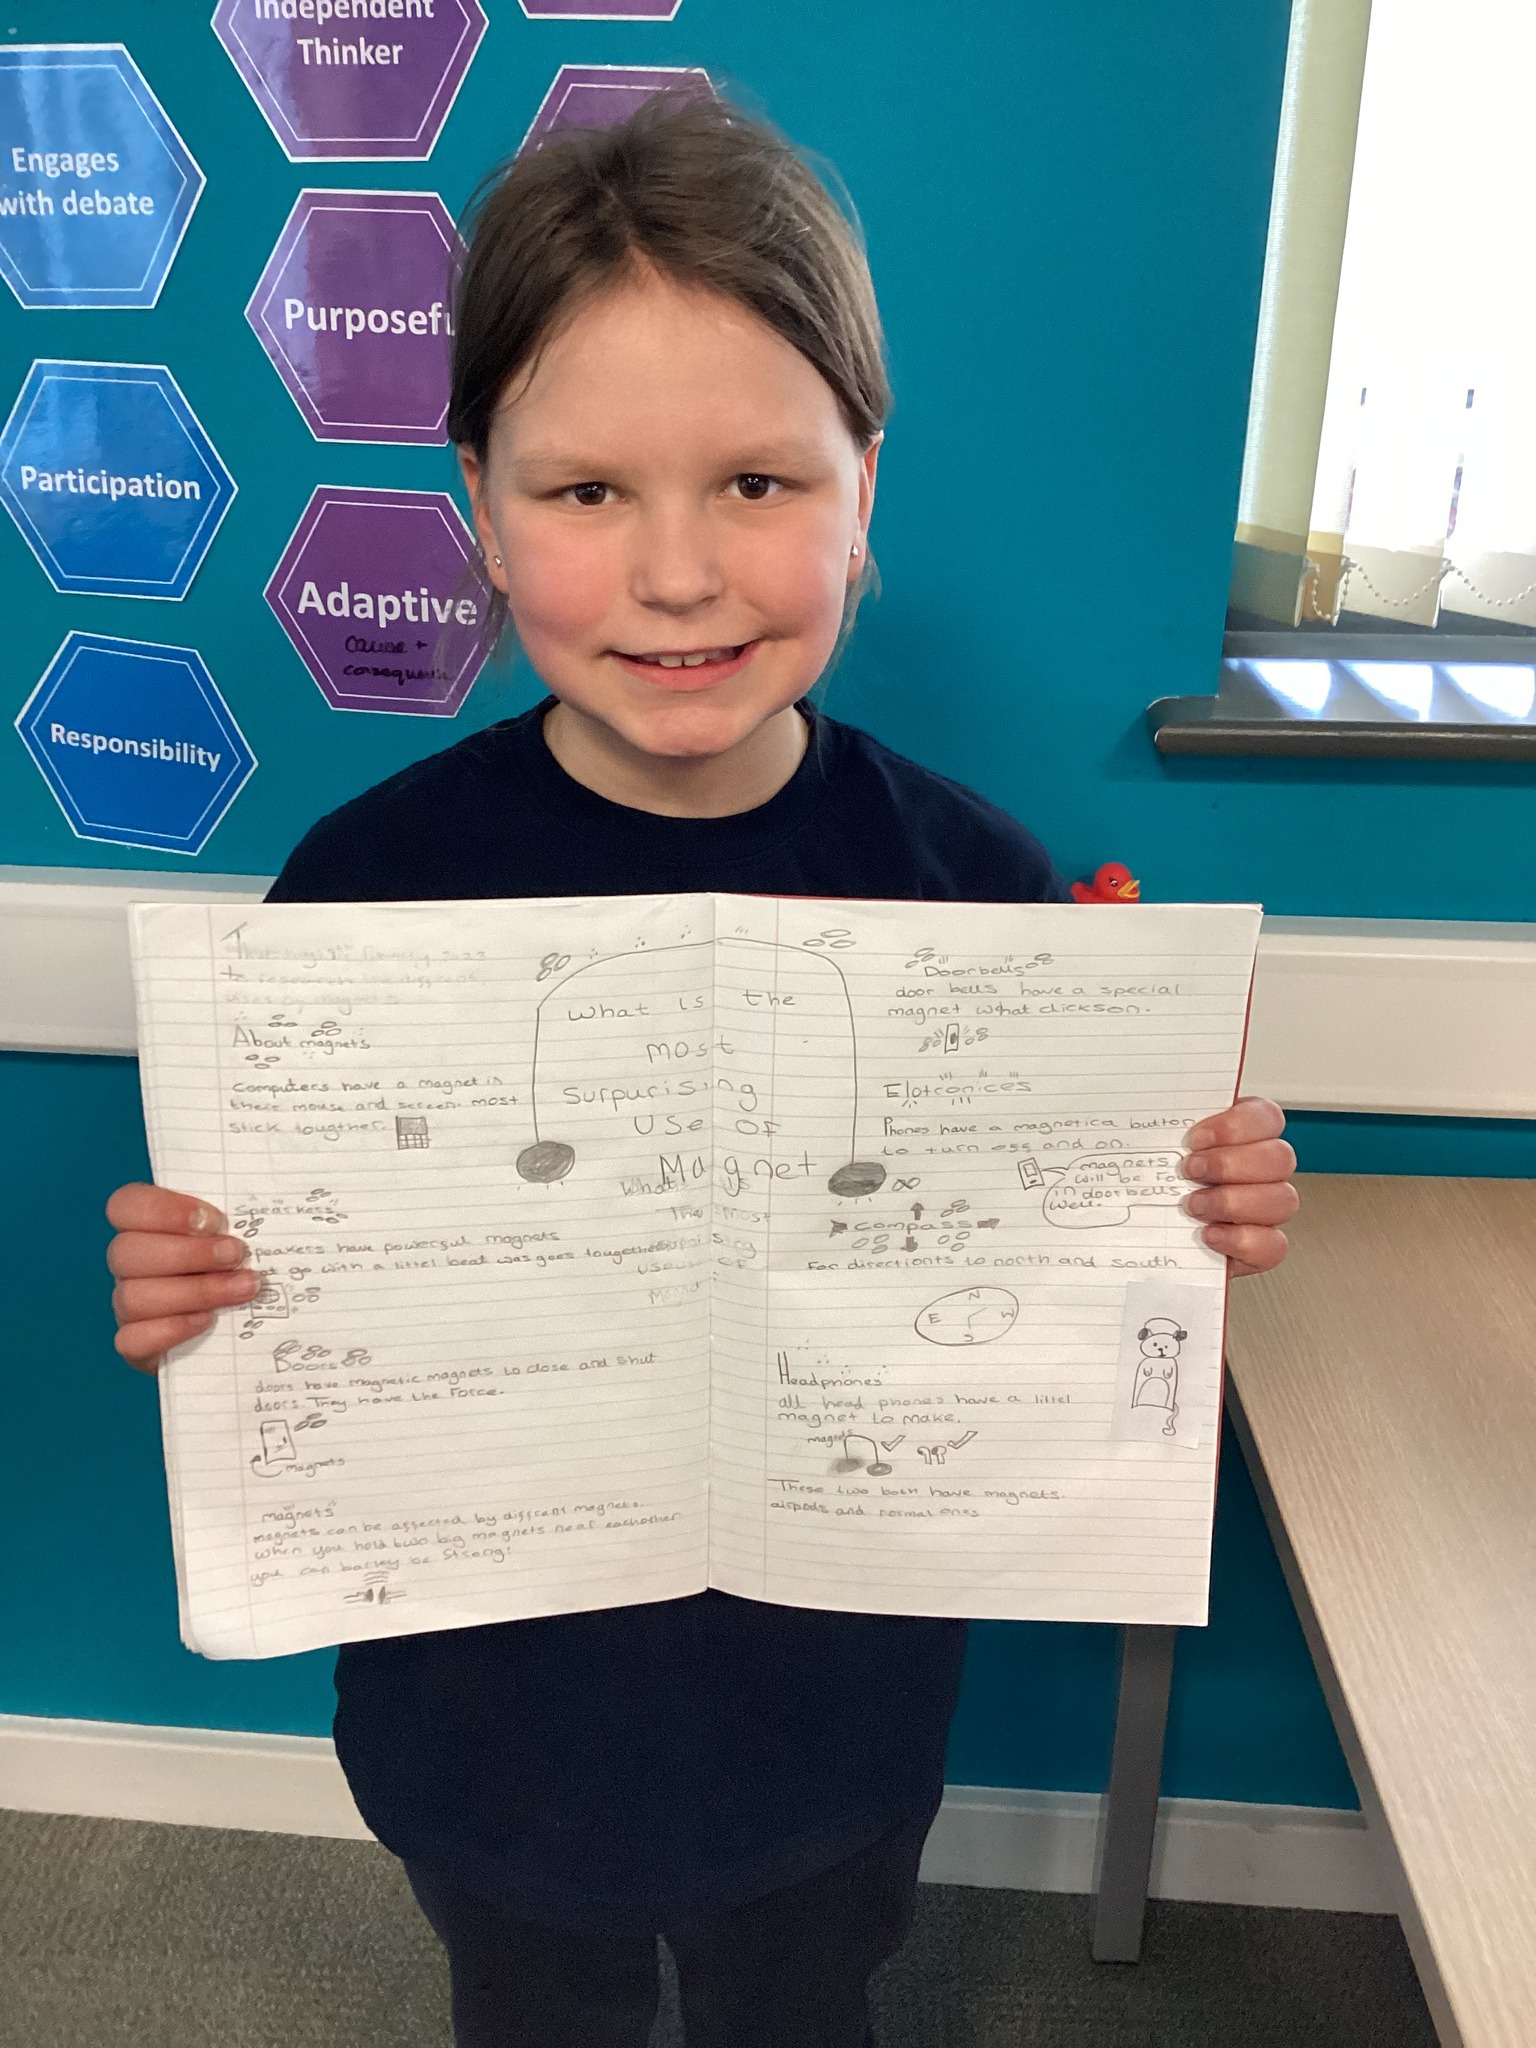 Independent
Thinker
Engages
with debate
Purposefu
Participation
Adaptive
cause +
consequence
Responsibility
to research the different
uses of magnets
About magnets
Computers have a magnet in
their mouse and screen. most
stick tougther.
Spearkers
Speakers have powerful magnets
go with a littel beat was goes tougether
Doors
doors have magnetic magnets to close and shut
doors. They have the Force.
magnets
magnets
magnets can be affected by diffrent magnets.
when you hold two big magnets near eachother
you can barley be strong!
What is the
most
surpurising
use of
Magnet
What is
The most
use of
Magnet
Doorbells
door bells have a special
magnet what clickson.
Elotronices
Phones have a magnetica button
to turn off and on.
magnets
will be fou
in doorbells
well.
compass
For directionts to north and south.
N
E W
S
Headphones
all head phones have a littel
magnet to make.
magnets
These two both have magnets.
airpods and normal ones